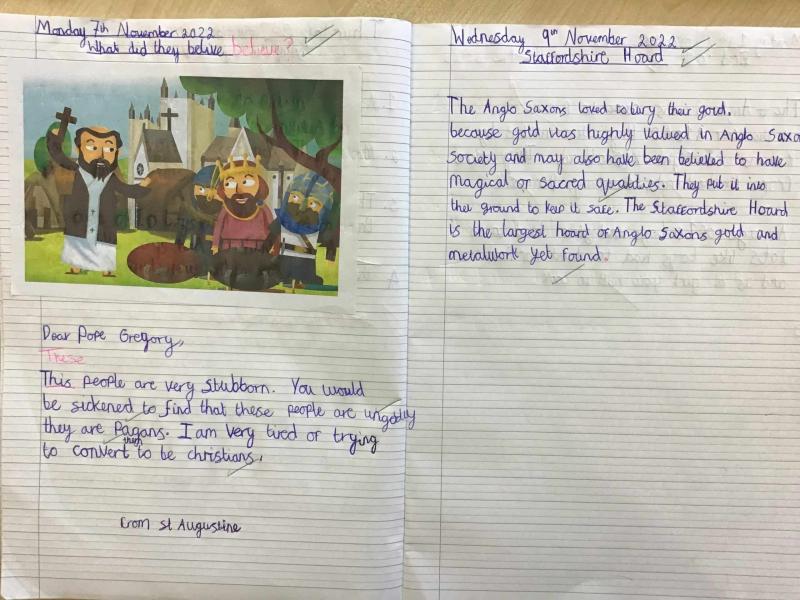 Monday 7th November 2022
What did they belive believe?
Dear Pope Gregory,
These
This people are very stubborn. You would
be sickened to find that these people are ungodly
they are Pagans. I am very tired of trying
them
to convert to be christians.
From St Augustine
Wednesday 9th November 2022
Staffordshire Hoard
The Anglo Saxons loved to bury their gold.
because gold was highly valued in Anglo Saxo
society and may also have been believed to have
magical or sacred qualities. They put it into
the ground to keep it safe. The Staffordshire Hoard
is the largest hoard of Anglo Saxons gold and
metalwork yet found.